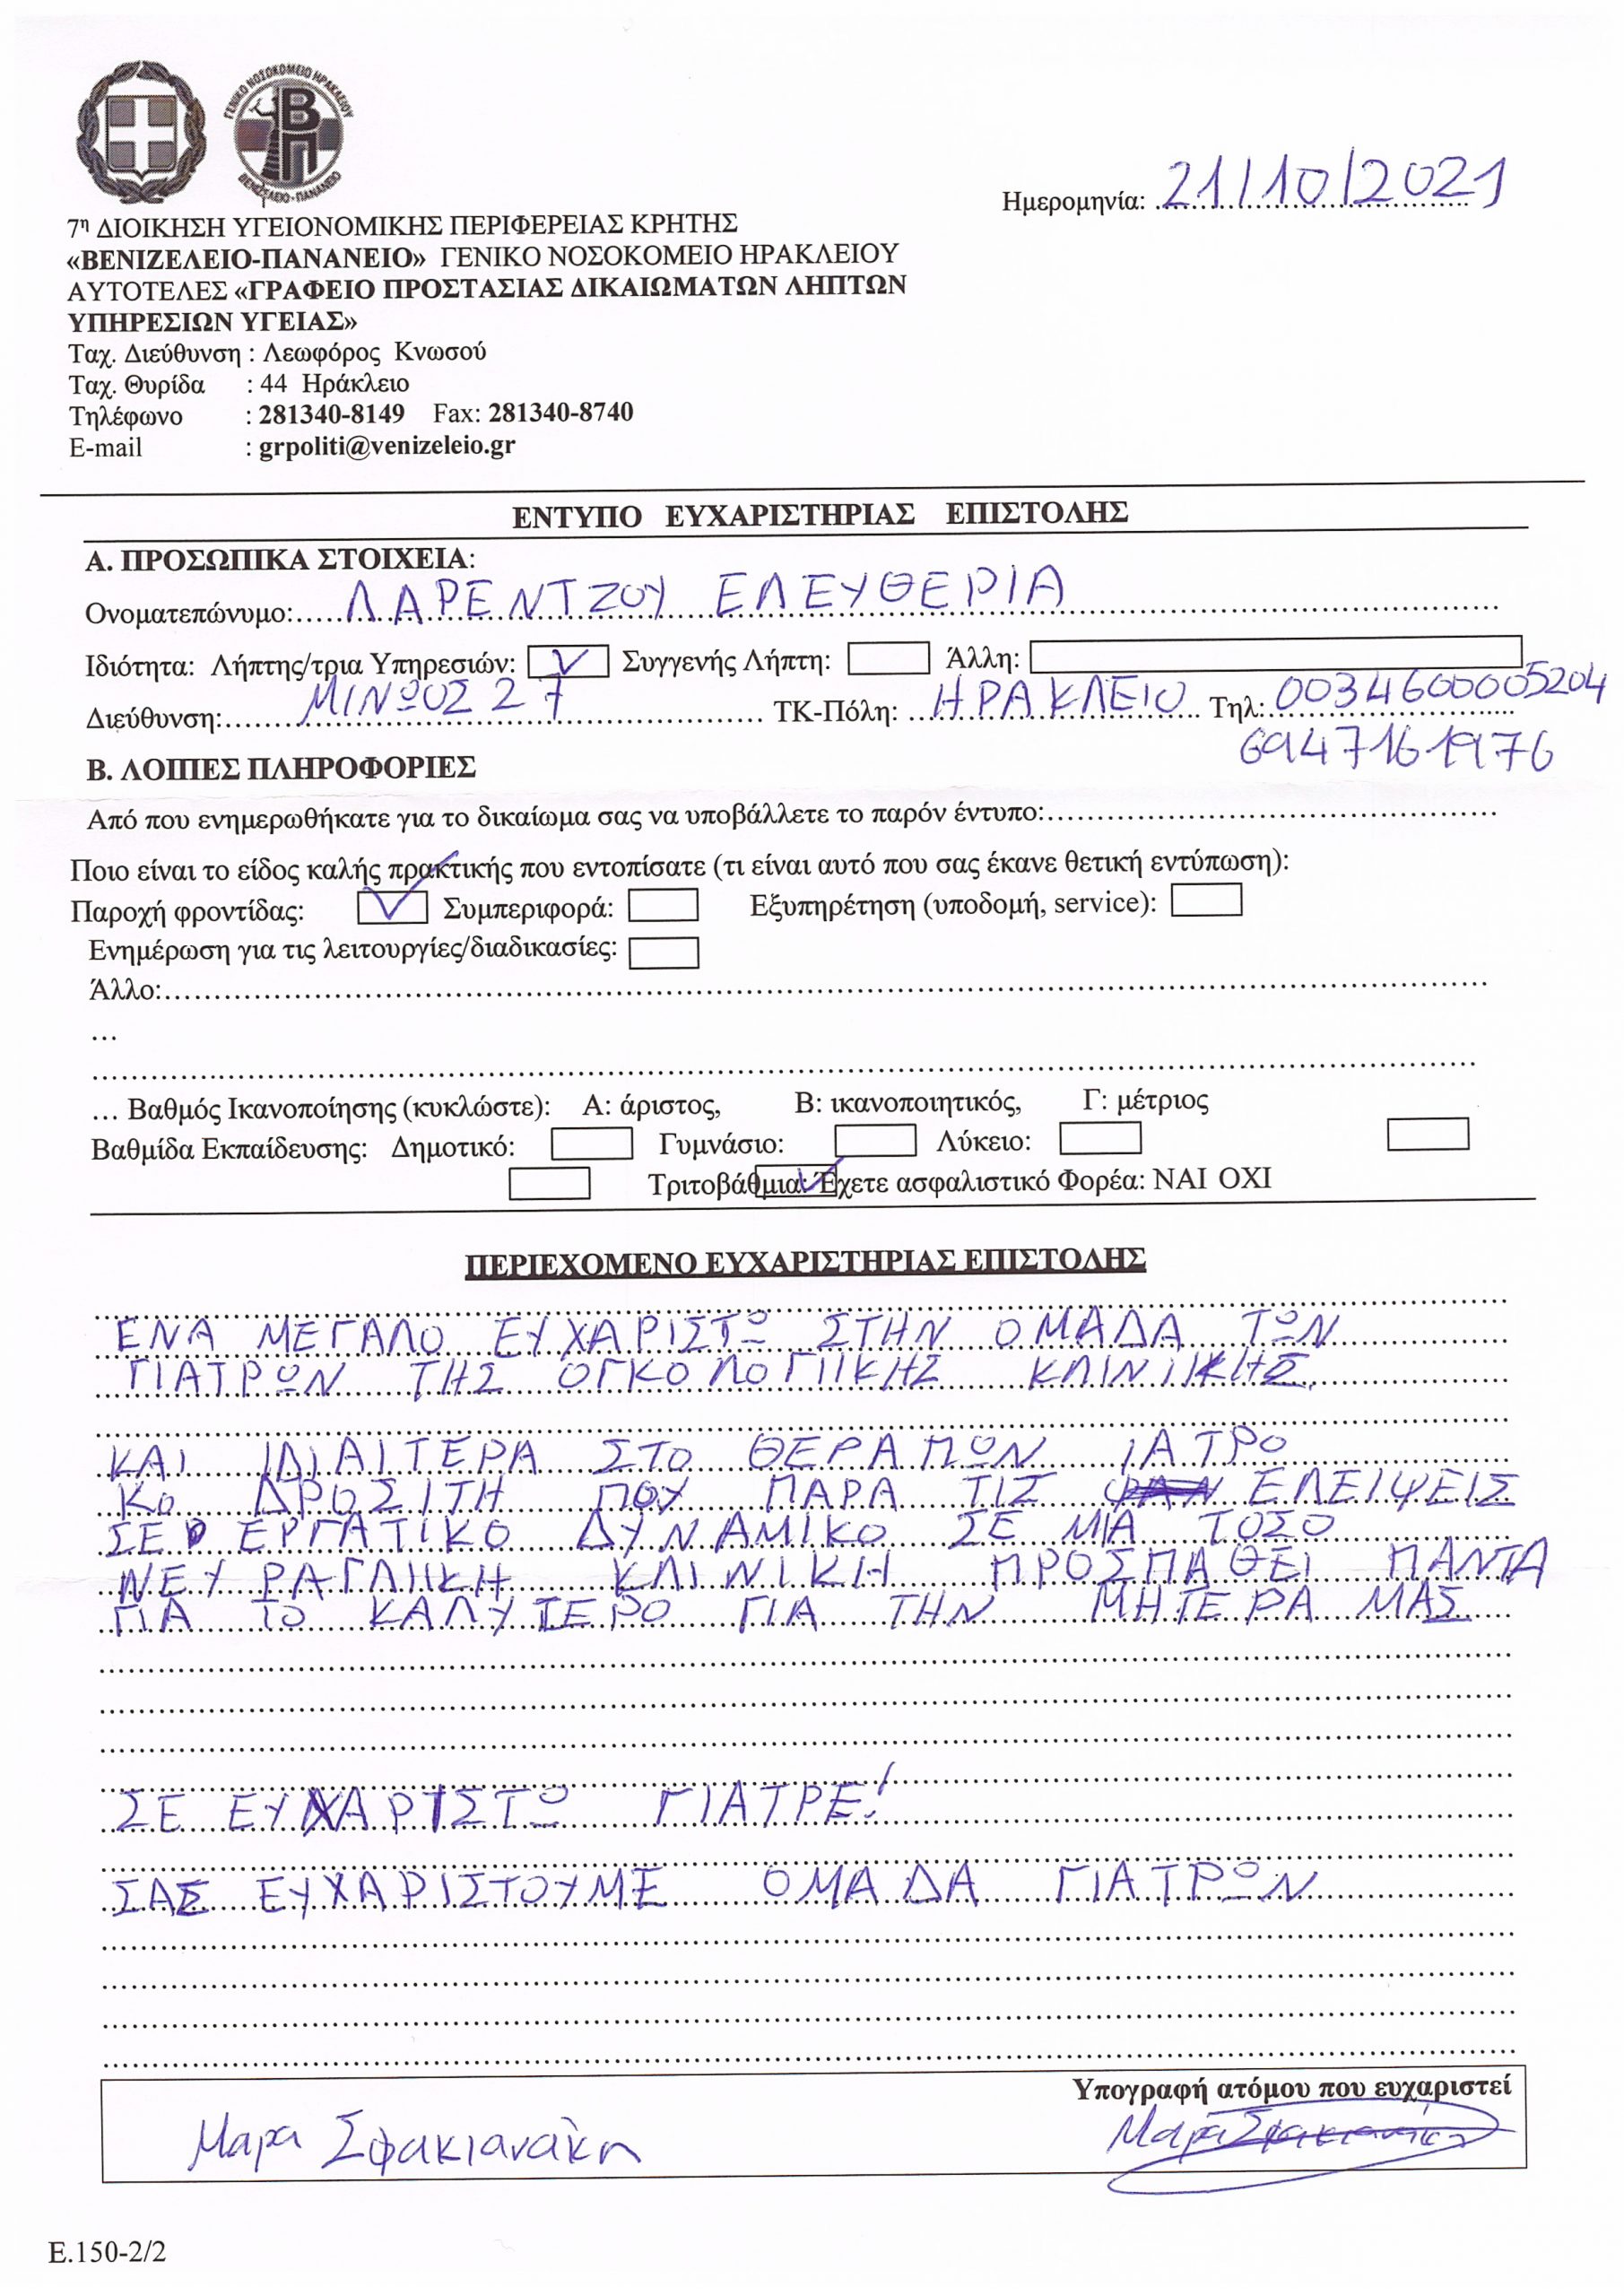 ΓΕΝΙΚΟ ΝΟΣΟΚΟΜΕΙΟ ΗΡΑΚΛΕΙΟΥ
ΒΠ
ΒΕΝΙΖΕΛΕΙΟ-ΠΑΝΑΝΕΙΟ
Ημερομηνία: 21/10/2021
7η ΔΙΟΙΚΗΣΗ ΥΓΕΙΟΝΟΜΙΚΗΣ ΠΕΡΙΦΕΡΕΙΑΣ ΚΡΗΤΗΣ
«ΒΕΝΙΖΕΛΕΙΟ-ΠΑΝΑΝΕΙΟ» ΓΕΝΙΚΟ ΝΟΣΟΚΟΜΕΙΟ ΗΡΑΚΛΕΙΟΥ
ΑΥΤΟΤΕΛΕΣ «ΓΡΑΦΕΙΟ ΠΡΟΣΤΑΣΙΑΣ ΔΙΚΑΙΩΜΑΤΩΝ ΛΗΠΤΩΝ
ΥΠΗΡΕΣΙΩΝ ΥΓΕΙΑΣ»
Ταχ. Διεύθυνση : Λεωφόρος Κνωσού
Ταχ. Θυρίδα : 44 Ηράκλειο
Τηλέφωνο : 281340-8149 Fax: 281340-8740
E-mail : grpoliti@venizeleio.gr
ΕΝΤΥΠΟ ΕΥΧΑΡΙΣΤΗΡΙΑΣ ΕΠΙΣΤΟΛΗΣ
Α. ΠΡΟΣΩΠΙΚΑ ΣΤΟΙΧΕΙΑ:
Ονοματεπώνυμο: ΛΑΡΕΝΤΖΟΥ ΕΛΕΥΘΕΡΙΑ
Ιδιότητα: Λήπτης/τρια Υπηρεσιών: Συγγενής Λήπτη: Άλλη:
Διεύθυνση: ΜΙΝΩΟΣ 27 ΤΚ-Πόλη: ΗΡΑΚΛΕΙΟ Τηλ: 0034600005204
6947161976
Β. ΛΟΙΠΕΣ ΠΛΗΡΟΦΟΡΙΕΣ
Από που ενημερωθήκατε για το δικαίωμα σας να υποβάλλετε το παρόν έντυπο:
Ποιο είναι το είδος καλής πρακτικής που εντοπίσατε (τι είναι αυτό που σας έκανε θετική εντύπωση):
Παροχή φροντίδας: Συμπεριφορά: Εξυπηρέτηση (υποδομή, service):
Ενημέρωση για τις λειτουργίες/διαδικασίες:
Άλλο:
…
… Βαθμός Ικανοποίησης (κυκλώστε): Α: άριστος, Β: ικανοποιητικός, Γ: μέτριος
Βαθμίδα Εκπαίδευσης: Δημοτικό: Γυμνάσιο: Λύκειο:
Τριτοβάθμια: Έχετε ασφαλιστικό Φορέα: ΝΑΙ ΟΧΙ
ΠΕΡΙΕΧΟΜΕΝΟ ΕΥΧΑΡΙΣΤΗΡΙΑΣ ΕΠΙΣΤΟΛΗΣ
ΕΝΑ ΜΕΓΑΛΟ ΕΥΧΑΡΙΣΤΩ ΣΤΗΝ ΟΜΑΔΑ ΤΩΝ
ΓΙΑΤΡΩΝ ΤΗΣ ΟΓΚΟΛΟΓΙΙΚΗΣ ΚΛΙΝΙΚΗΣ
ΚΑΙ ΙΔΙΑΙΤΕΡΑ ΣΤΟ ΘΕΡΑΠΩΝ ΙΑΤΡΟ
Κο ΔΡΟΣΙΤΗ ΠΟΥ ΠΑΡΑ ΤΙΣ ΕΛΕΙΨΕΙΣ
ΣΕ ΕΡΓΑΤΙΚΟ ΔΥΝΑΜΙΚΟ ΣΕ ΜΙΑ ΤΟΣΟ
ΝΕΥΡΑΓΛΙΙΚΗ ΚΛΙΝΙΚΗ ΠΡΟΣΠΑΘΕΙ ΠΑΝΤΑ
ΓΙΑ ΤΟ ΚΑΛΥΤΕΡΟ ΓΙΑ ΤΗΝ ΜΗΤΕΡΑ ΜΑΣ
ΣΕ ΕΥΧΑΡΙΣΤΩ ΓΙΑΤΡΕ!
ΣΑΣ ΕΥΧΑΡΙΣΤΟΥΜΕ ΟΜΑΔΑ ΓΙΑΤΡΩΝ
Υπογραφή ατόμου που ευχαριστεί
Μαρα Σφακιανάκη
Μαρα Σφακιανάκη
Ε.150-2/2